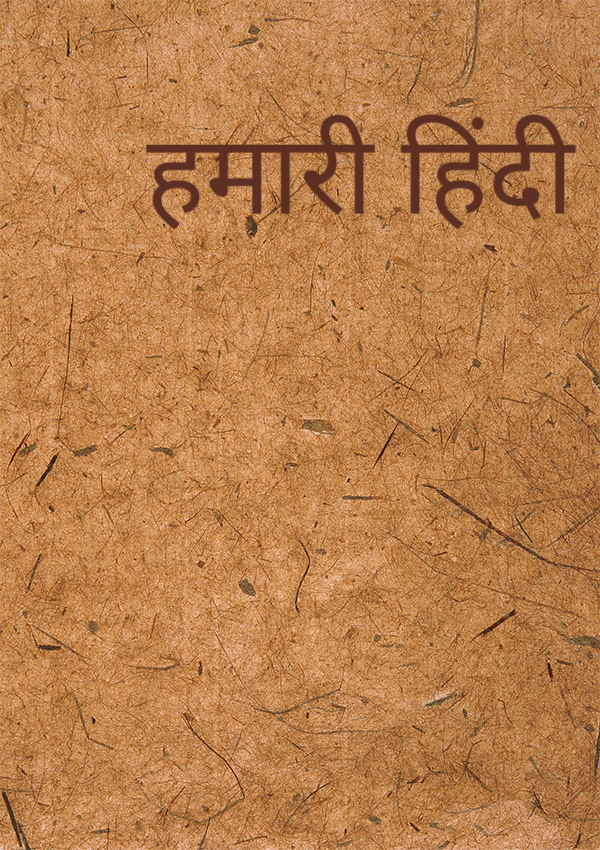 हमारी हिंदी